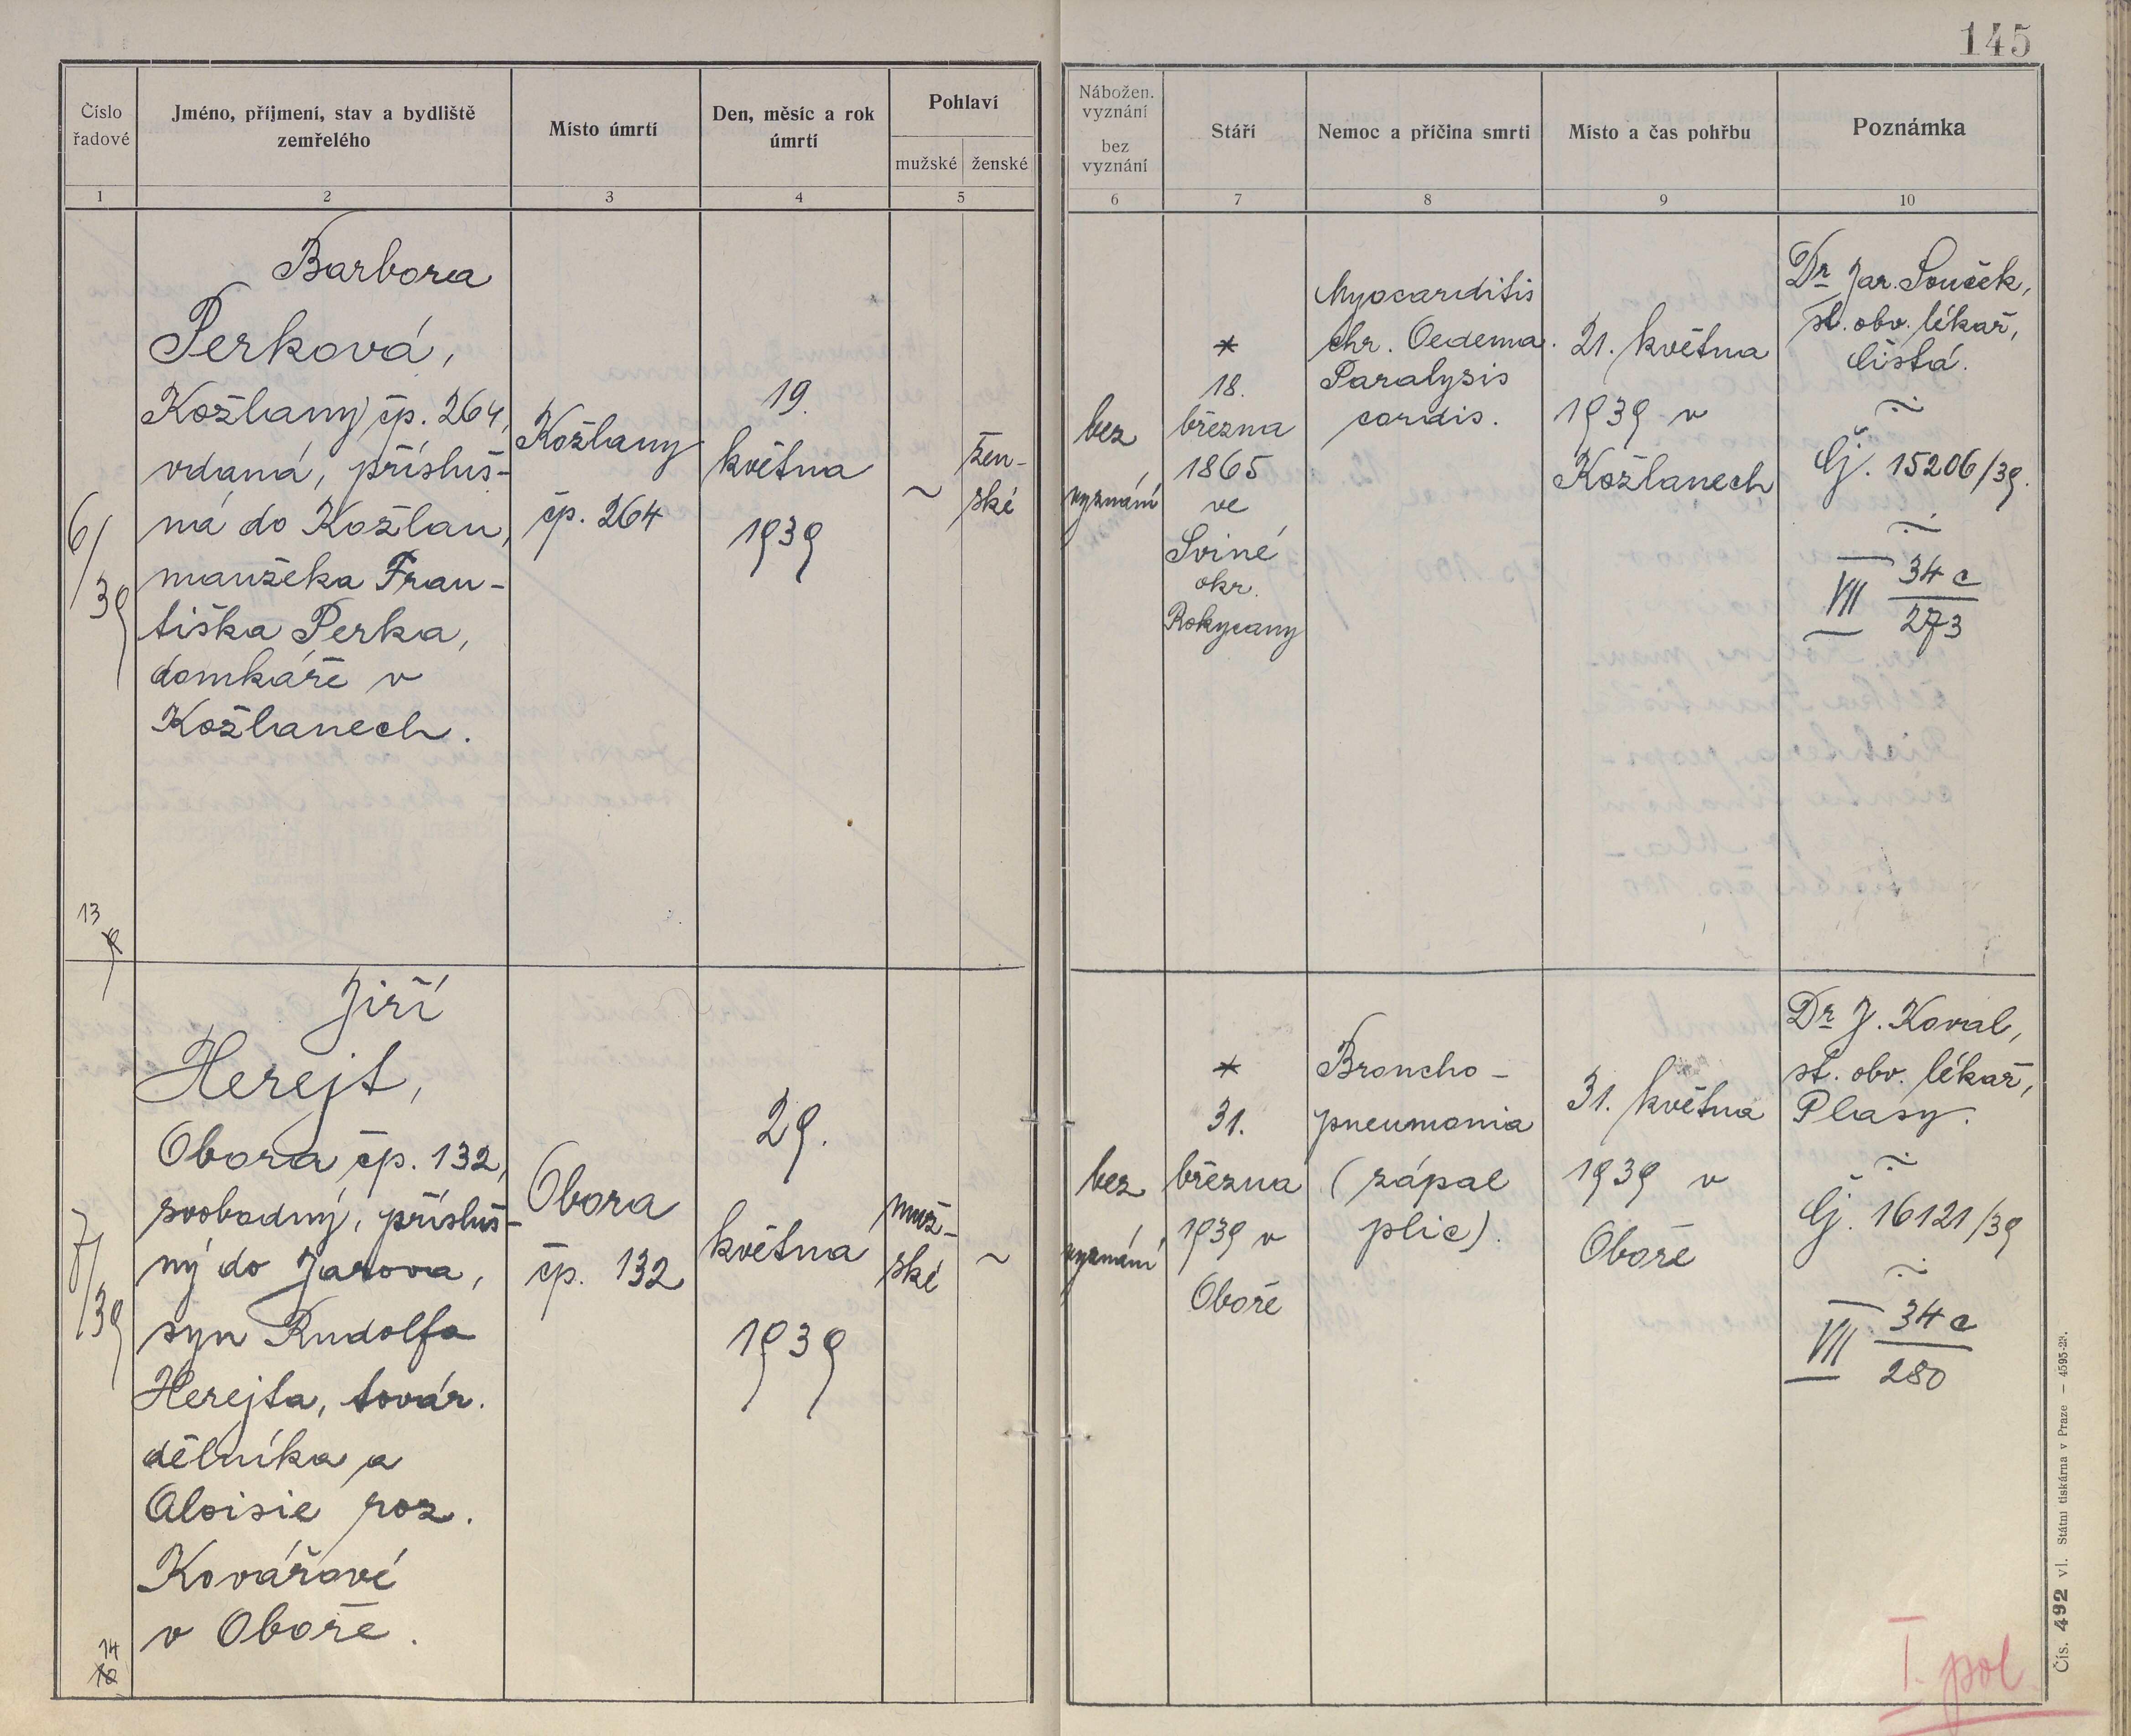 145
Číslo
řadové
Jméno, příjmení, stav a bydliště
zemřelého
Místo úmrtí
Den, měsíc a rok
úmrtí
Pohlaví
mužské
ženské
Nábožen.
vyznání
bez
vyznání
Stáří
Nemoc a příčina smrti
Místo a čas pohřbu
Poznámka
1
2
3
4
5
6
7
8
9
10
6/39
13
Barbora
Perková,
Kožlany čp. 264,
vdaná, přísluš-
ná do Kožlan,
manželka Fran-
tiška Perka,
domkáře v
Kožlanech.
Kožlany
čp. 264
19.
května
1939
~
žen-
ské
bez
vyznání
*
18.
března
1865
ve
Sviné
okr.
Rokycany
Myocarditis
chr. Oedema.
Paralysis
cordis.
21. května
1939 v
Kožlanech
Dr Jar. Souček,
st. obv. lékař,
Čistá.
Čj. 15206/39.
VII 34 c
273
7/39
14
Jiří
Herejt,
Obora čp. 132,
svobodný, přísluš-
ný do Jarova,
syn Rudolfa
Herejta, továr.
dělníka a
Aloisie roz.
Kovářové
v Oboře.
Obora
čp. 132
29.
května
1939
muž-
ské
~
bez
vyznání
*
31.
března
1939 v
Oboře
Broncho-
pneumonia
(zápal
plic).
31. května
1939 v
Oboře
Dr J. Koval,
st. obv. lékař,
Plasy.
Čj. 16121/39
VII 34 c
280
I. pol.
Čís. 492 vl. Státní tiskárna v Praze — 4595-23.